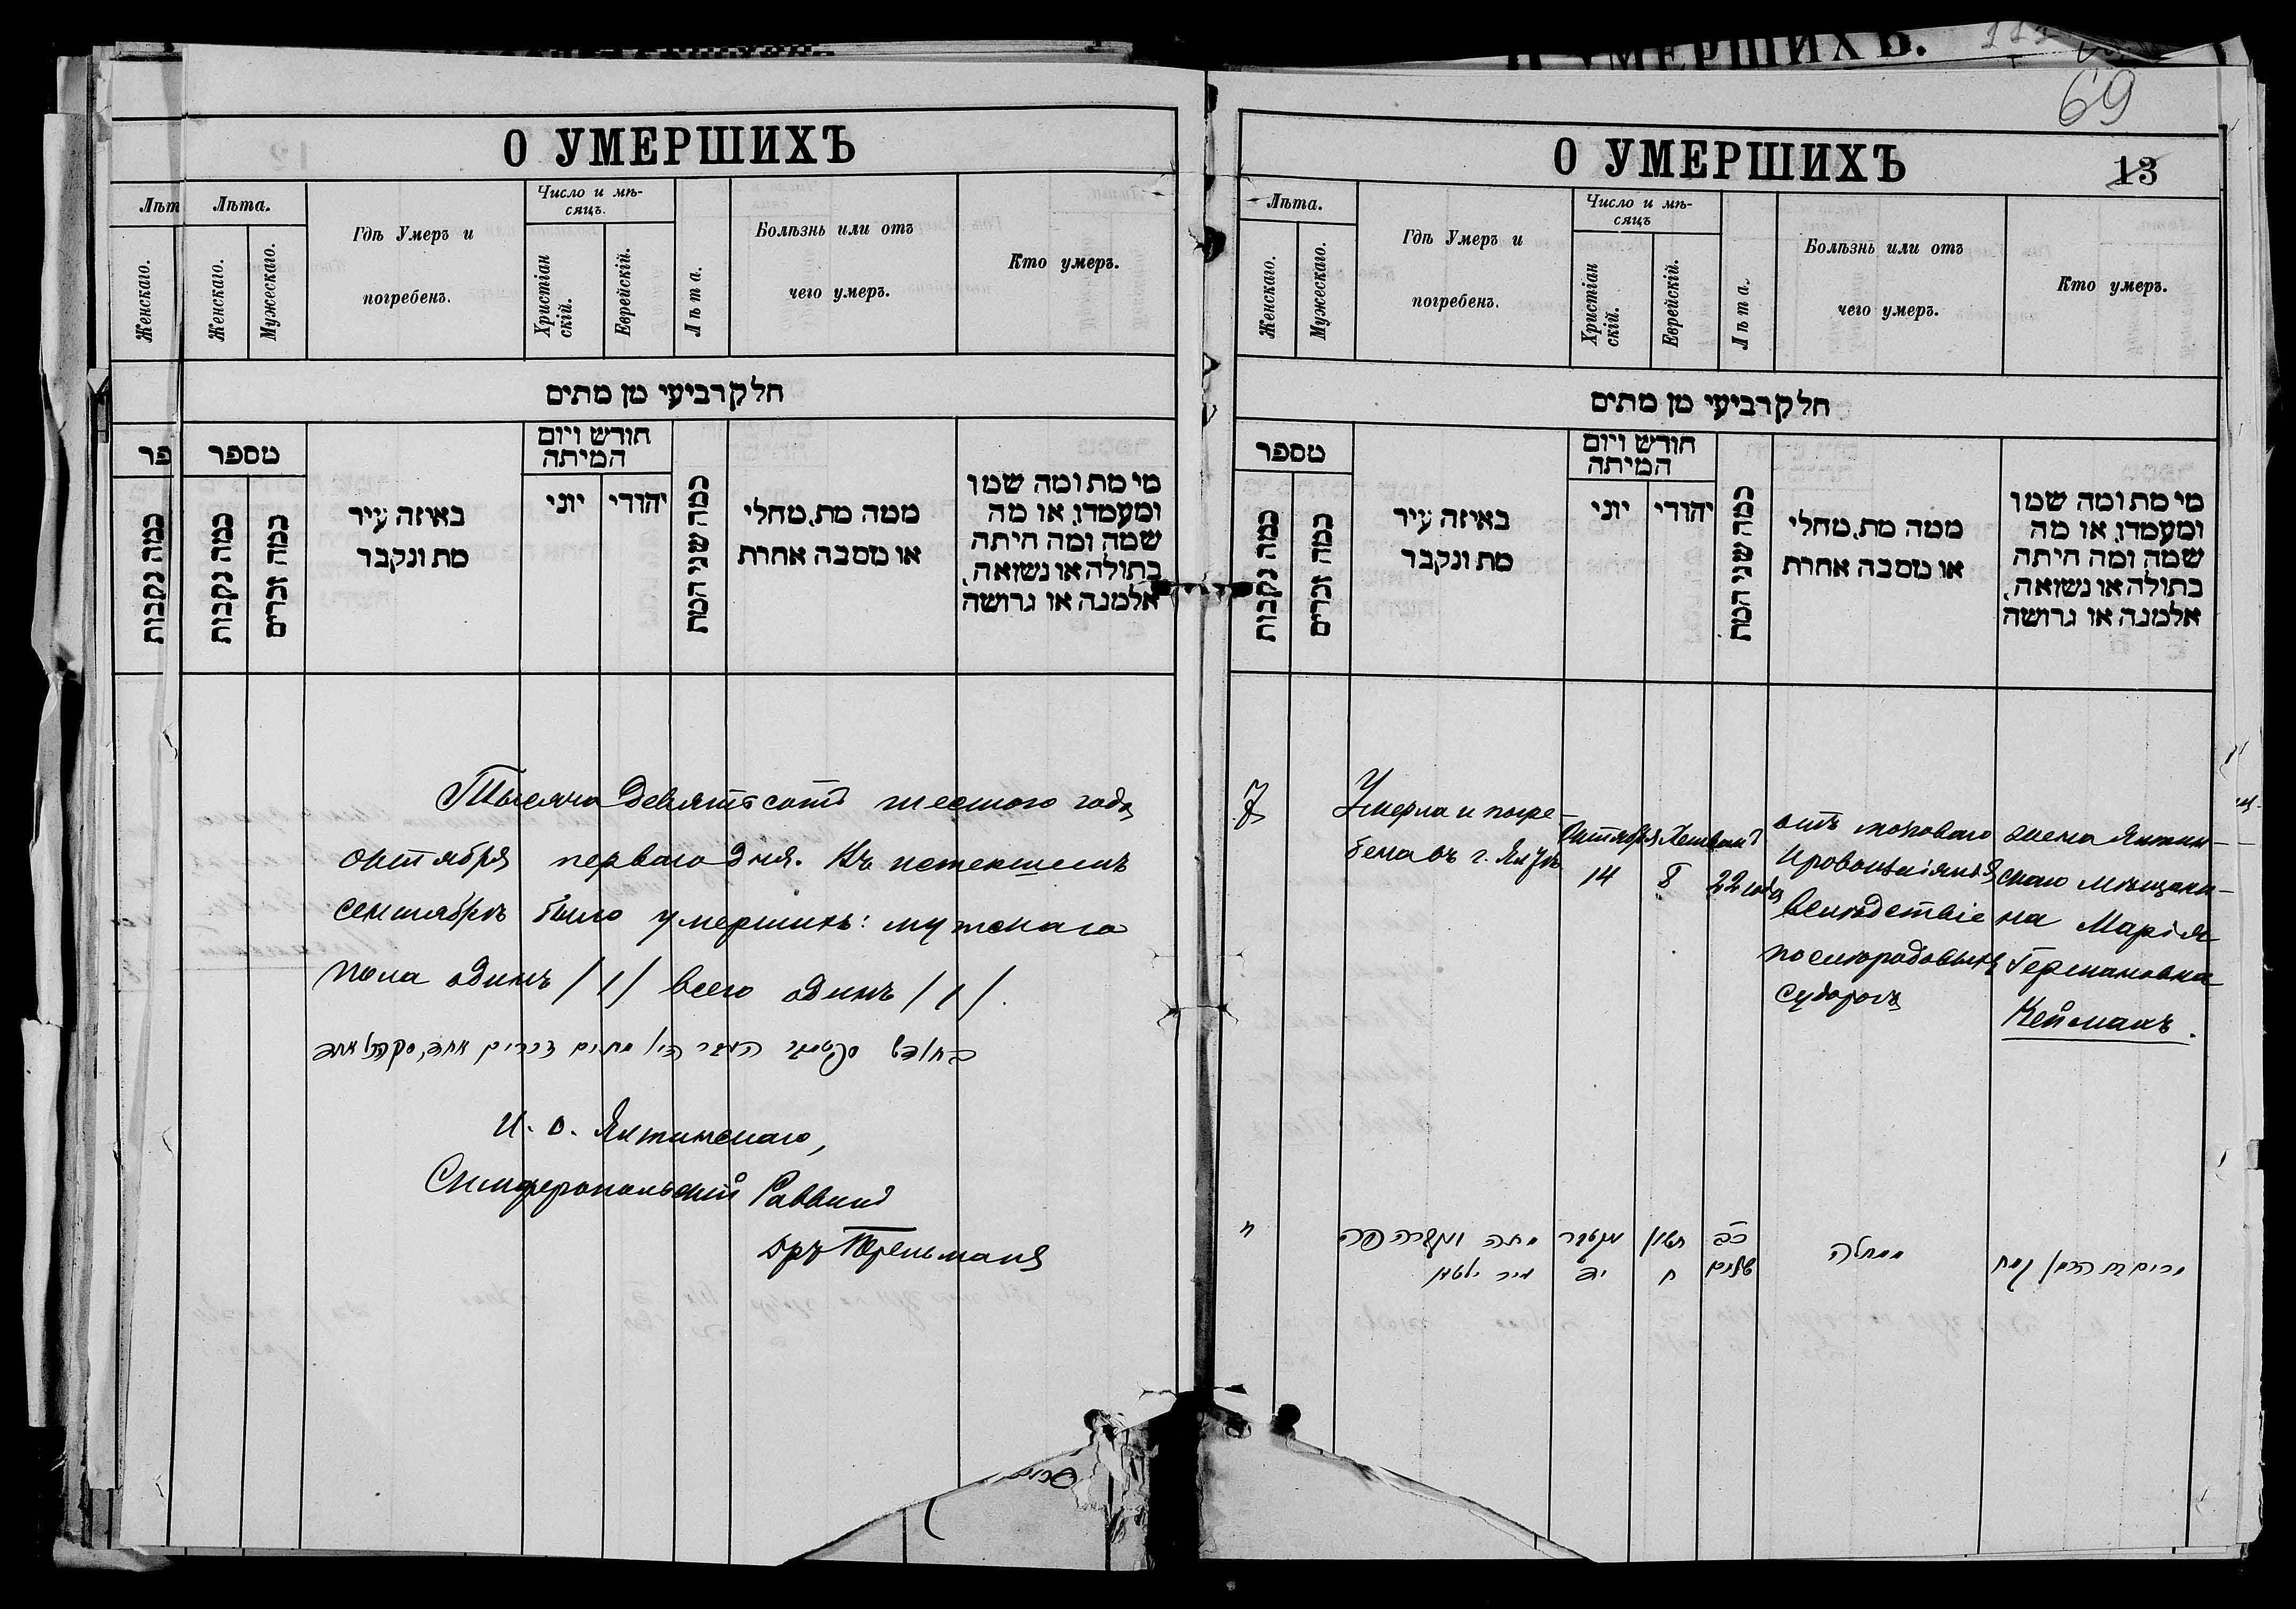 О УМЕРШИХЪ
Лѣт
Лѣта.
Гдѣ Умеръ и
погребенъ.
Число и мѣ-
сяцъ.
Женскаго.
Женскаго.
Мужескаго.
Христіан
скій.
Еврейскій.
Лѣта.
Болѣзнь или отъ
чего умеръ.
Кто умеръ.
חלק רביעי מן מתים
פר
מספר
כמה נקבות
כמה נקבות
כמה זכרים
באיזה עיר
מת ונקבר
חודש ויום
המיתה
יוני
יהודי
כמה שני המת
ממה מת, מחלי
או מסבה אחרת
מי מת ומה שמו
ומעמדו, או מה
שמה ומה היתה
בתולה או נשואה,
אלמנה או גרושה
Тысяча девятьсотъ шестого года
октября перваго дня. Въ истекшемъ
сентябрѣ было умершихъ: мужскаго
пола одинъ /1/ всего одинъ /1/.
И. о. Ялтинскаго,
Симферопольскій Раввинъ
О УМЕРШИХЪ
69
13
Лѣта.
Женскаго.
Мужескаго.
Гдѣ Умеръ и
погребенъ.
Число и мѣ-
сяцъ
Христіан
скій.
Еврейскій.
Лѣта.
Болѣзнь или отъ
чего умеръ.
Кто умеръ.
חלק רביעי מן מתים
מספר
כמה נקבות
כמה זכרים
באיזה עיר
מת ונקבר
חודש ויום
המיתה
יוני
יהודי
כמה שני המת
ממה מת, מחלי
או מסבה אחרת
מי מת ומה שמו
ומעמדו, או מה
שמה ומה היתה
בתולה או נשואה,
אלמנה או גרושה
7
Умерла и погре-
бена въ г.
Октября
14
Хешвонъ
8
22 года
отъ мозгового
кровоизліянія
вслѣдствіе
послѣродовыхъ
судорогъ
жена Ялтин-
скаго мѣщани-
на Марія
Германовна
Нейманъ.
חשון
ח
יד
כב
שנים